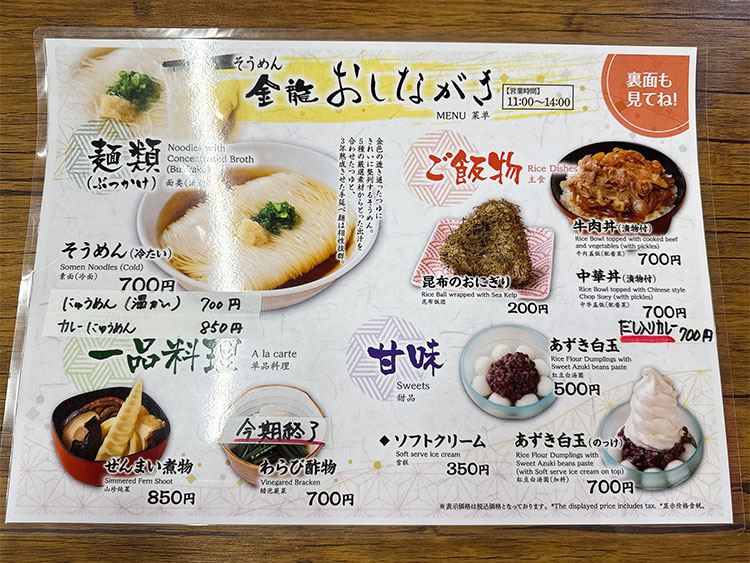 そうめん
金龍 おしながき
MENU 菜单
【営業時間】
11:00～14:00
裏面も
見てね!
麺類
(ぶっかけ)
Noodles with
Concentrated Broth
(Bukkake)
面类
金色の透き通ったつゆに
きれいに整列するそうめん。
5種の厳選素材からとった出汁を
合わせたつゆと、
3年熟成させた手延べ麺は相性抜群。
そうめん(冷たい)
Somen Noodles (Cold)
素面(冷面)
700円
にゅうめん (温かい) 700円
カレーにゅうめん 850円
ご飯物
Rice Dishes
主食
牛肉丼(漬物付)
Rice Bowl topped with cooked beef
and vegetables (with pickles)
牛肉盖饭(配酱菜)
700円
昆布のおにぎり
Rice Ball wrapped with Sea Kelp
昆布饭团
200円
中華丼(漬物付)
Rice Bowl topped with Chinese style
Chop Suey (with pickles)
中华盖饭(配酱菜)
700円
700円
一品料理
A la carte
单品料理
ぜんまい煮物
Simmered Fern Shoot
山珍炖菜
850円
今期終了
わらび酢物
Vinegared Bracken
醋泡蕨菜
700円
甘味
Sweets
甜品
あずき白玉
Rice Flour Dumplings with
Sweet Azuki beans paste
红豆白汤圆
500円
◆ソフトクリーム
Soft serve ice cream
雪糕
350円
あずき白玉(のっけ)
Rice Flour Dumplings with
Sweet Azuki beans paste
(with soft serve ice cream on top)
红豆白汤圆(加料)
700円
※表示価格は税込価格となっております。 *The displayed price includes tax. *显示价格含税。